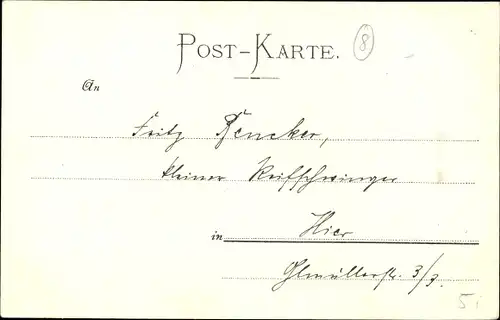 POST-KARTE. 8
An
Fritz Rencker,
kleiner Reifschwinger
in Hier
Ohlmüllerstr. 3/3.
5.